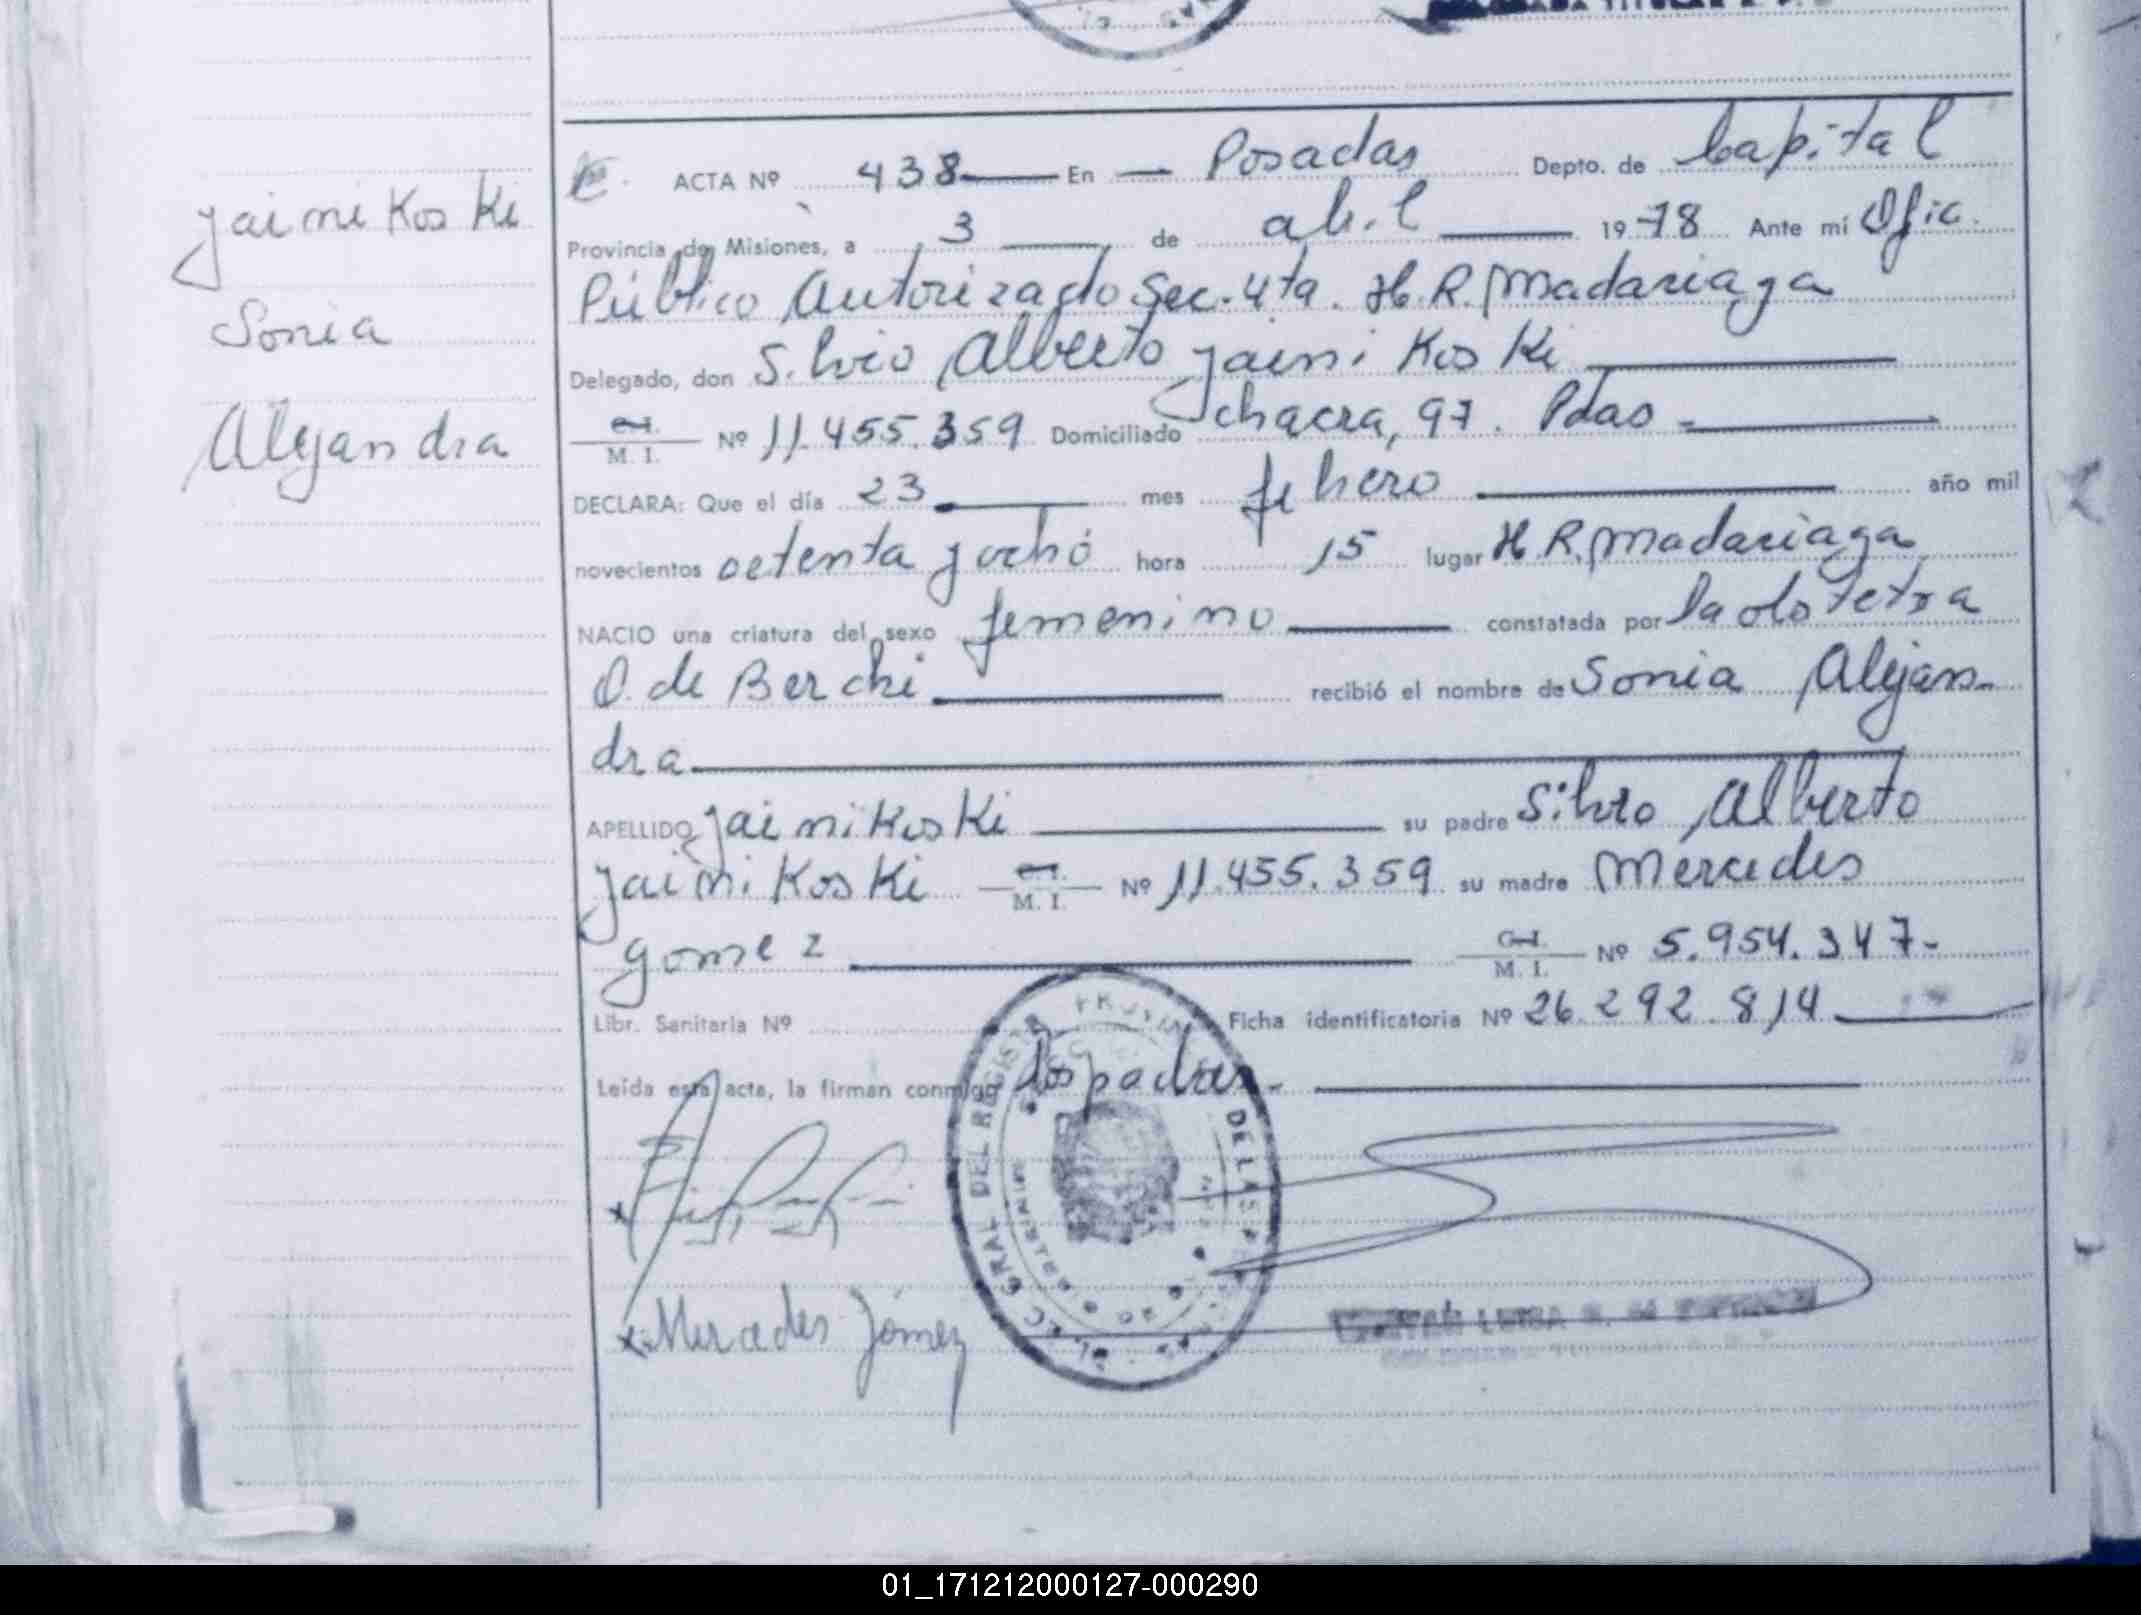 Jaimikoski
Sonia
Alejandra
ACTA Nº 438 En Posadas Depto. de Capital
Provincia de Misiones, a 3 de abril 1978 Ante mí Ofic.
Público Autorizado Sec. 4ta. H. R. Madariaga
Delegado, don Silvio Alberto Jaimikoski
C.I. M. I. Nº 11.455.359 Domiciliado chacra, 97. Pdas
DECLARA: Que el día 23 mes febrero año mil
novecientos setenta y ocho hora 15 lugar H. R. Madariaga
NACIO una criatura del sexo femenino constatada por la obstetra
O. de Berchi recibió el nombre de Sonia Alejan-
dra
APELLIDO Jaimikoski su padre Silvio Alberto
Jaimikoski C.I. M. I. Nº 11.455.359 su madre Mercedes
Gomez C.I. M. I. Nº 5.954.347-
Libr. Sanitaria Nº Ficha identificatoria Nº 26.292.814
Leída esta acta, la firman conmigo los padres-
GRAL DEL REGISTRO DE LAS
x Mercedes Gómez
01_171212000127-000290